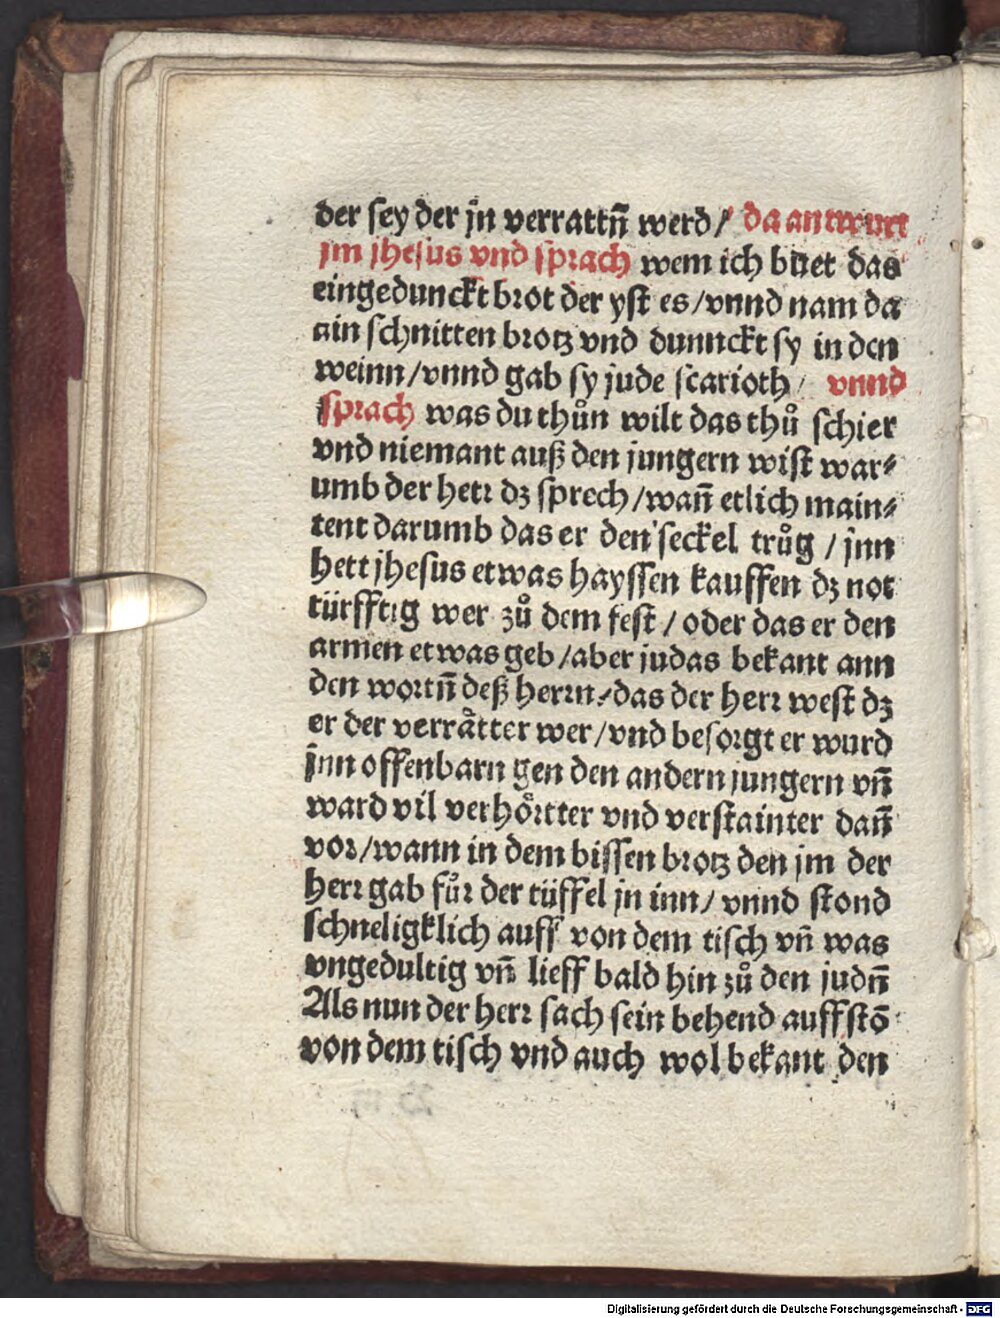 der sey der jn verrattñ werd/ da antwurt
jm jhesus vnd sprach wem ich büet das
eingedunckt brot der yst es/vnnd nam da
ain schnitten brotz vnd dunnckt sy in den
weinn/vnnd gab sy jude scarioth/ vnnd
sprach was du thůn wilt das thů schier
vnd niemant auß den jungern wist war⸗
umb der herr dz sprech/wañ etlich main⸗
tent darumb das er den seckel trůg / jnn
hett jhesus etwas hayssen kauffen dz not
türfftig wer zů dem fest / oder das er den
armen etwas geb/aber judas bekant ann
den wortñ deß herrn/das der herr west dz
er der verrätter wer/vnd besorgt er wurd
jnn offenbarn gen den andern jungern vñ
ward vil verhörtter vnd verstainter dañ
vor/wann in dem bissen brotz den jm der
herr gab fůr der tüffel jn inn/ vnnd stond
schneligklich auff von dem tisch vñ was
vngedultig vñ lieff bald hin zů den judñ
Als nun der herr sach sein behend auffstō
von dem tisch vnd auch wol bekant den
Digitalisierung gefördert durch die Deutsche Forschungsgemeinschaft - DFG